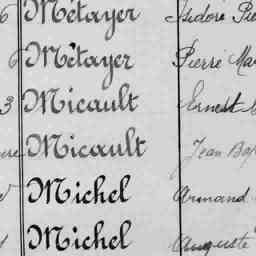 6 Métayer Isidore Pie
6 Métayer Pierre Ma
3 Micault Ernest
Micault Jean Bap
Michel Armand
Michel Auguste